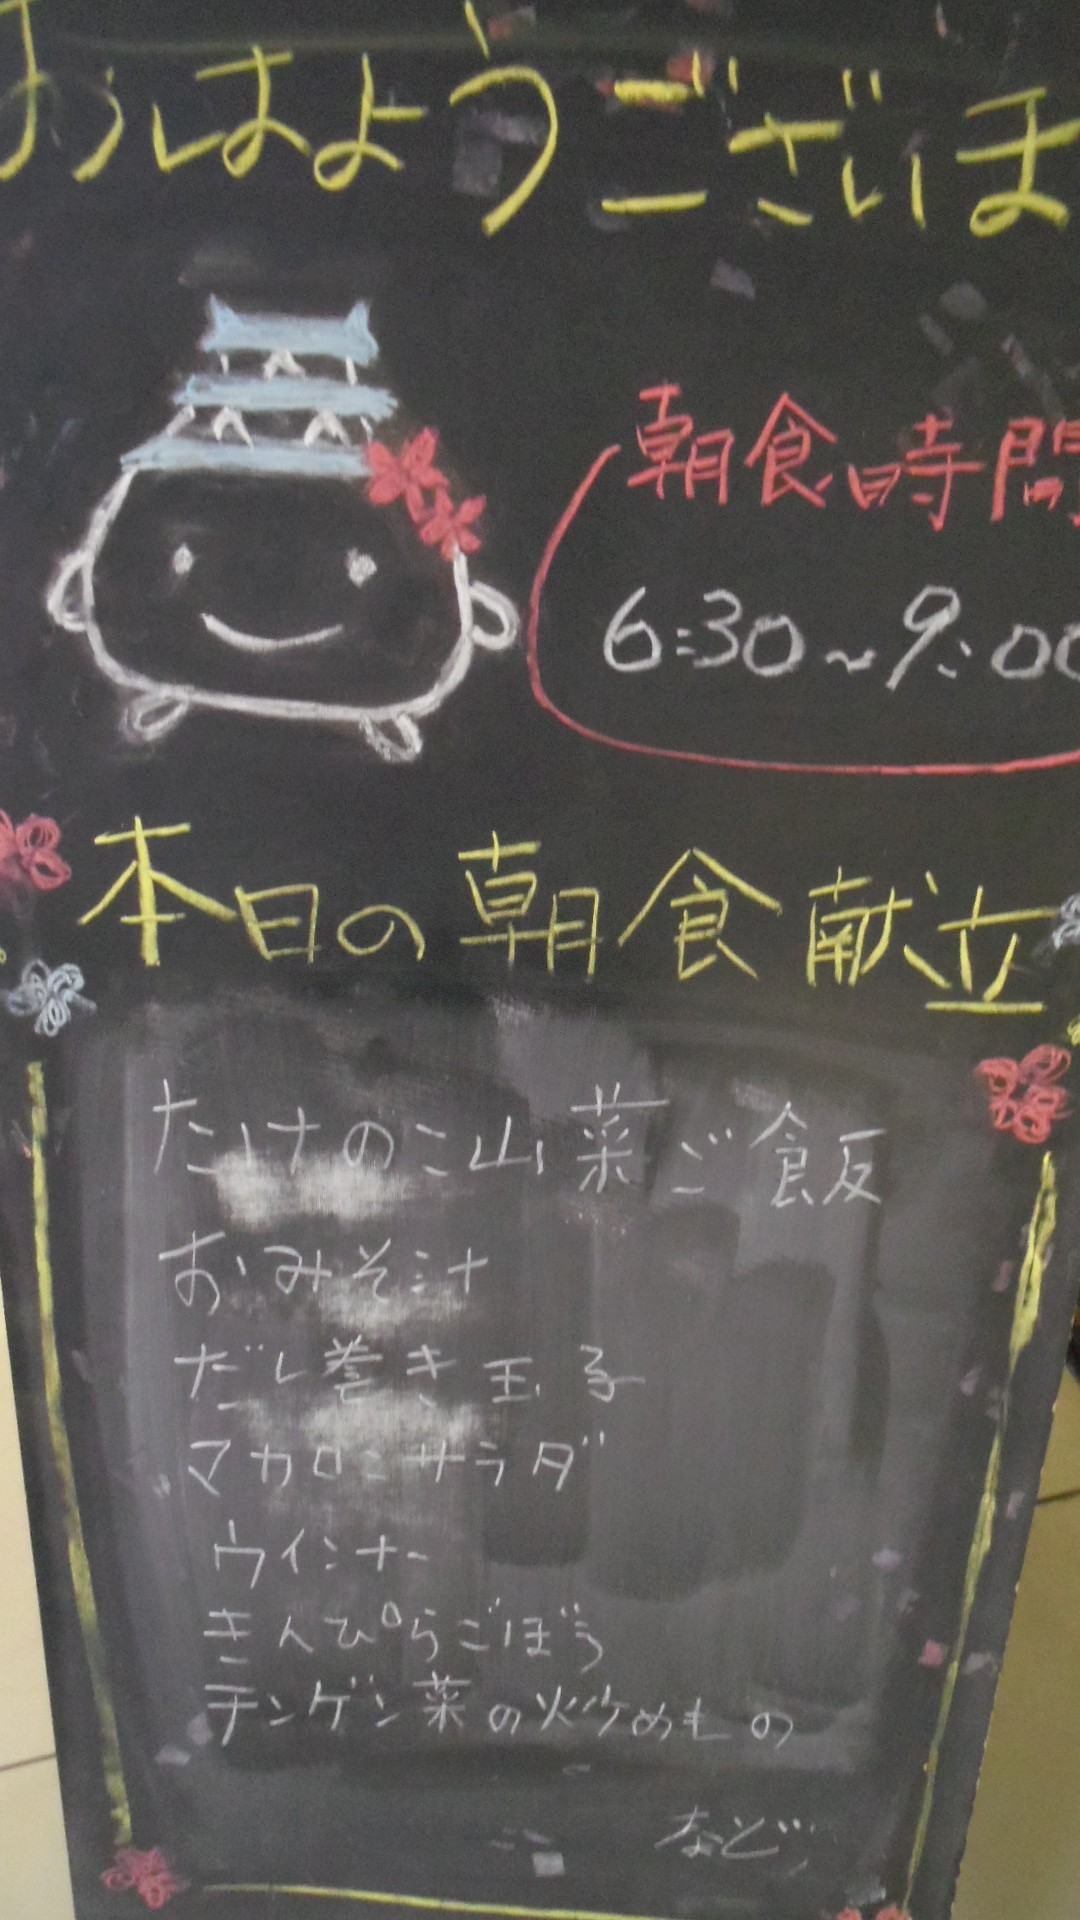 おはようございま
朝食時間
6:30~9:00
本日の朝食献立
たけのこ山菜ご飯
おみそ汁
だし巻き玉子
マカロニサラダ
ウインナー
きんぴらごぼう
チンゲン菜の炒めもの
など